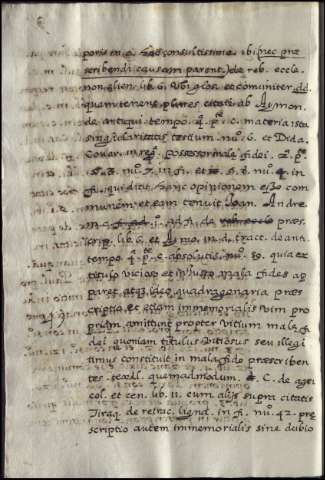 poris in. c. hac consultissima ibi (nec præ
scribendi causam parent) de reb. eccle.
non alien. lib. 6. Ubi glos. et communiter dd.
quam tenens plures citat ab Aimon.
de antiqui. tempo. 4. p.te c. materia ista
singularitatis tertium. nu.o 6. et Dida.
Covar. in reg. possessor malæ fidei. 2. p.te
§. 8. nu.o 7. in fi. et §. 3. nu.o 4. in
fi. qui dicit hanc opinionem esse com
munem, et eam tenuit Joan. Andre.
in ad fi. de præs
crip. lib. 6. et Aimo. in d. tract. de anti.
tempo. 4. p.te c. absolutis. nu.o 30. quia ex
titulo vicioso et infecto mala fides ap
paret. atq. ideo quadragenaria præs
criptio, et etiam immemorialis vim pro
priam amittunt propter vitium malæ fi
dei quoniam titulus vitiosus seu illegi
timus constituit in mala fide præscriben
tes. quemadmodum. C. de agri
col. et cen. lib. 11. cum alijs supra citatis
Tiraq. de retrac. lignag. in fi. nu.o 42. præ
scriptio autem immemorialis sine dubio